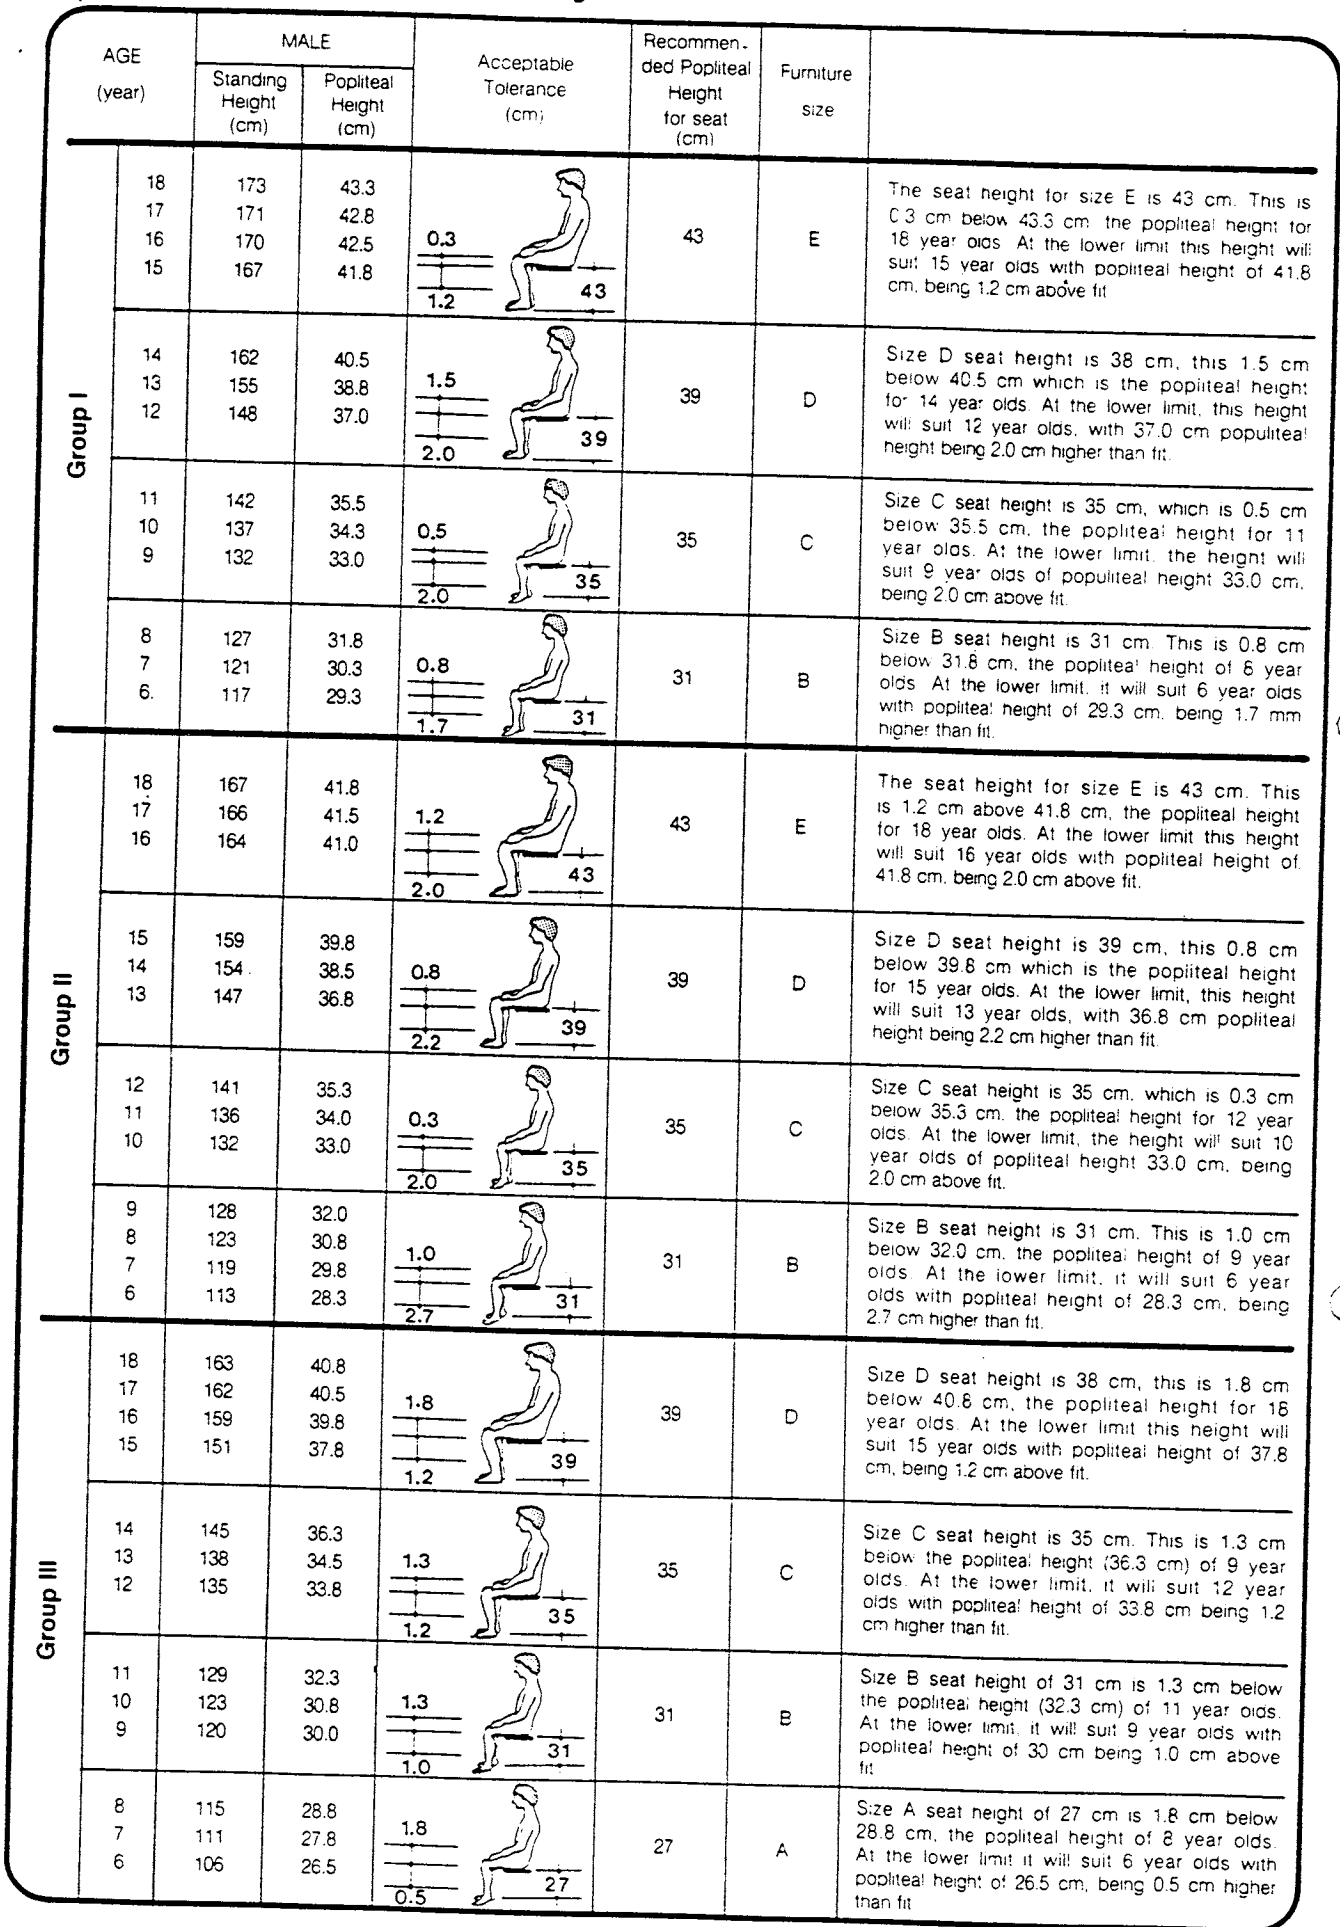 AGE
(year)
MALE
Standing
Height
(cm)
Popliteal
Height
(cm)
Acceptable
Tolerance
(cm)
Recommen-
ded Popliteal
Height
for seat
(cm)
Furniture
size
Group I
18 173 43.3
17 171 42.8
16 170 42.5
15 167 41.8
0.3
1.2
43
43
E
The seat height for size E is 43 cm. This is
0.3 cm below 43.3 cm the popliteal height for
18 year olds At the lower limit this height will
suit 15 year olds with popliteal height of 41.8
cm, being 1.2 cm above fit
14 162 40.5
13 155 38.8
12 148 37.0
1.5
2.0
39
39
D
Size D seat height is 38 cm, this 1.5 cm
below 40.5 cm which is the popliteal height
for 14 year olds. At the lower limit, this height
will suit 12 year olds, with 37.0 cm populiteal
height being 2.0 cm higher than fit.
11 142 35.5
10 137 34.3
9 132 33.0
0.5
2.0
35
35
C
Size C seat height is 35 cm, which is 0.5 cm
below 35.5 cm, the popliteal height for 11
year olds. At the lower limit, the height will
suit 9 year olds of populiteal height 33.0 cm,
being 2.0 cm above fit.
8 127 31.8
7 121 30.3
6. 117 29.3
0.8
1.7
31
31
B
Size B seat height is 31 cm. This is 0.8 cm
below 31.8 cm, the popliteal height of 8 year
olds. At the lower limit, it will suit 6 year olds
with popliteal height of 29.3 cm, being 1.7 mm
higher than fit.
Group II
18 167 41.8
17 166 41.5
16 164 41.0
1.2
2.0
43
43
E
The seat height for size E is 43 cm. This
is 1.2 cm above 41.8 cm, the popliteal height
for 18 year olds. At the lower limit this height
will suit 16 year olds with popliteal height of
41.8 cm, being 2.0 cm above fit.
15 159 39.8
14 154 38.5
13 147 36.8
0.8
2.2
39
39
D
Size D seat height is 39 cm, this 0.8 cm
below 39.8 cm which is the popliteal height
for 15 year olds. At the lower limit, this height
will suit 13 year olds, with 36.8 cm popliteal
height being 2.2 cm higher than fit.
12 141 35.3
11 136 34.0
10 132 33.0
0.3
2.0
35
35
C
Size C seat height is 35 cm, which is 0.3 cm
below 35.3 cm, the popliteal height for 12 year
olds. At the lower limit, the height will suit 10
year olds of popliteal height 33.0 cm, being
2.0 cm above fit.
9 128 32.0
8 123 30.8
7 119 29.8
6 113 28.3
1.0
2.7
31
31
B
Size B seat height is 31 cm. This is 1.0 cm
below 32.0 cm, the popliteal height of 9 year
olds. At the lower limit, it will suit 6 year
olds with popliteal height of 28.3 cm, being
2.7 cm higher than fit.
Group III
18 163 40.8
17 162 40.5
16 159 39.8
15 151 37.8
1.8
1.2
39
39
D
Size D seat height is 38 cm, this is 1.8 cm
below 40.8 cm, the popliteal height for 18
year olds. At the lower limit this height will
suit 15 year olds with popliteal height of 37.8
cm, being 1.2 cm above fit.
14 145 36.3
13 138 34.5
12 135 33.8
1.3
1.2
35
35
C
Size C seat height is 35 cm. This is 1.3 cm
below the popliteal height (36.3 cm) of 9 year
olds. At the lower limit, it will suit 12 year
olds with popliteal height of 33.8 cm being 1.2
cm higher than fit.
11 129 32.3
10 123 30.8
9 120 30.0
1.3
1.0
31
31
B
Size B seat height of 31 cm is 1.3 cm below
the popliteal height (32.3 cm) of 11 year olds.
At the lower limit, it will suit 9 year olds with
popliteal height of 30 cm being 1.0 cm above
fit
8 115 28.8
7 111 27.8
6 106 26.5
1.8
0.5
27
27
A
Size A seat height of 27 cm is 1.8 cm below
28.8 cm, the popliteal height of 8 year olds.
At the lower limit it will suit 6 year olds with
popliteal height of 26.5 cm, being 0.5 cm higher
than fit